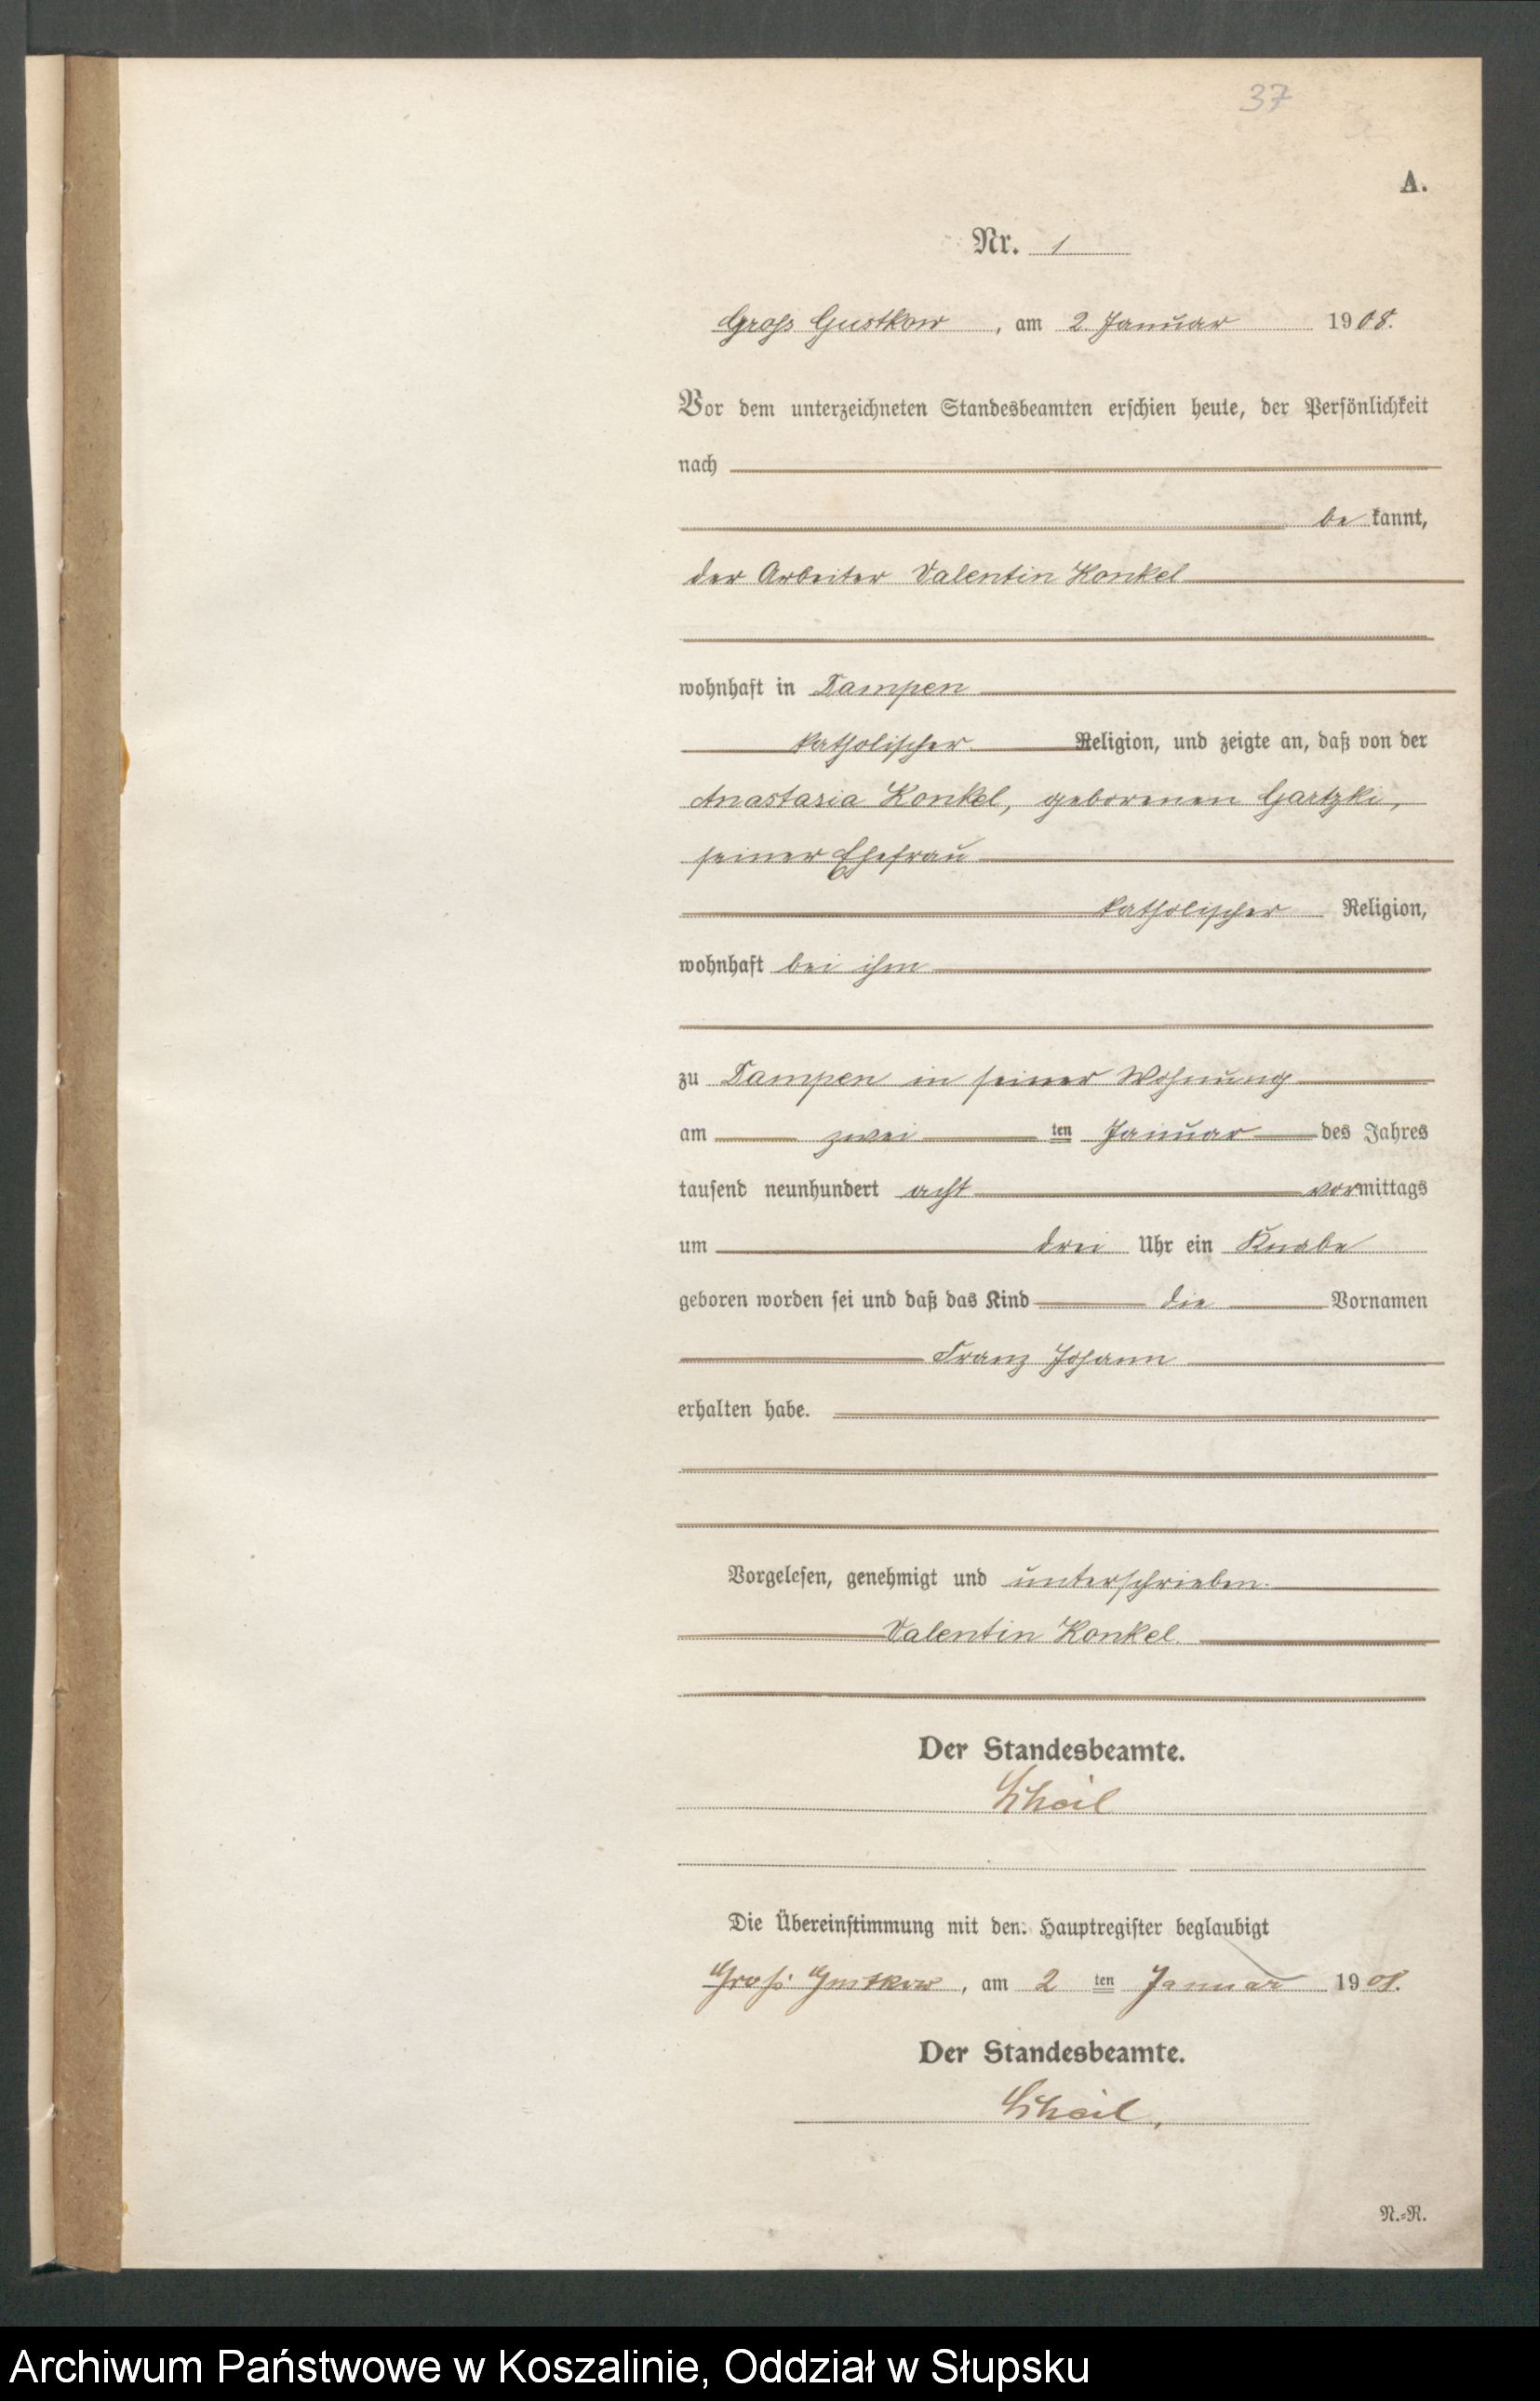 37
A.
Nr. 1
Groß Gustkow, am 2. Januar 1908.
Vor dem unterzeichneten Standesbeamten erschien heute, der Persönlichkeit
nach
be kannt,
der Arbeiter Valentin Konkel
wohnhaft in Tampen
katholischer Religion, und zeigte an, daß von der
Anastasia Konkel, geborenen Gartzki,
seiner Ehefrau
katholischer Religion,
wohnhaft bei ihm
zu Tampen in seiner Wohnung
am zwei ten Januar des Jahres
tausend neunhundert acht vormittags
um drei Uhr ein Knabe
geboren worden sei und daß das Kind die Vornamen
Franz Johann
erhalten habe.
Vorgelesen, genehmigt und unterschrieben.
Valentin Konkel.
Der Standesbeamte.
Die Übereinstimmung mit dem Hauptregister beglaubigt
Groß Gustkow, am 2 ten Januar 1908.
Der Standesbeamte.
N.-R.
Archiwum Państwowe w Koszalinie, Oddział w Słupsku